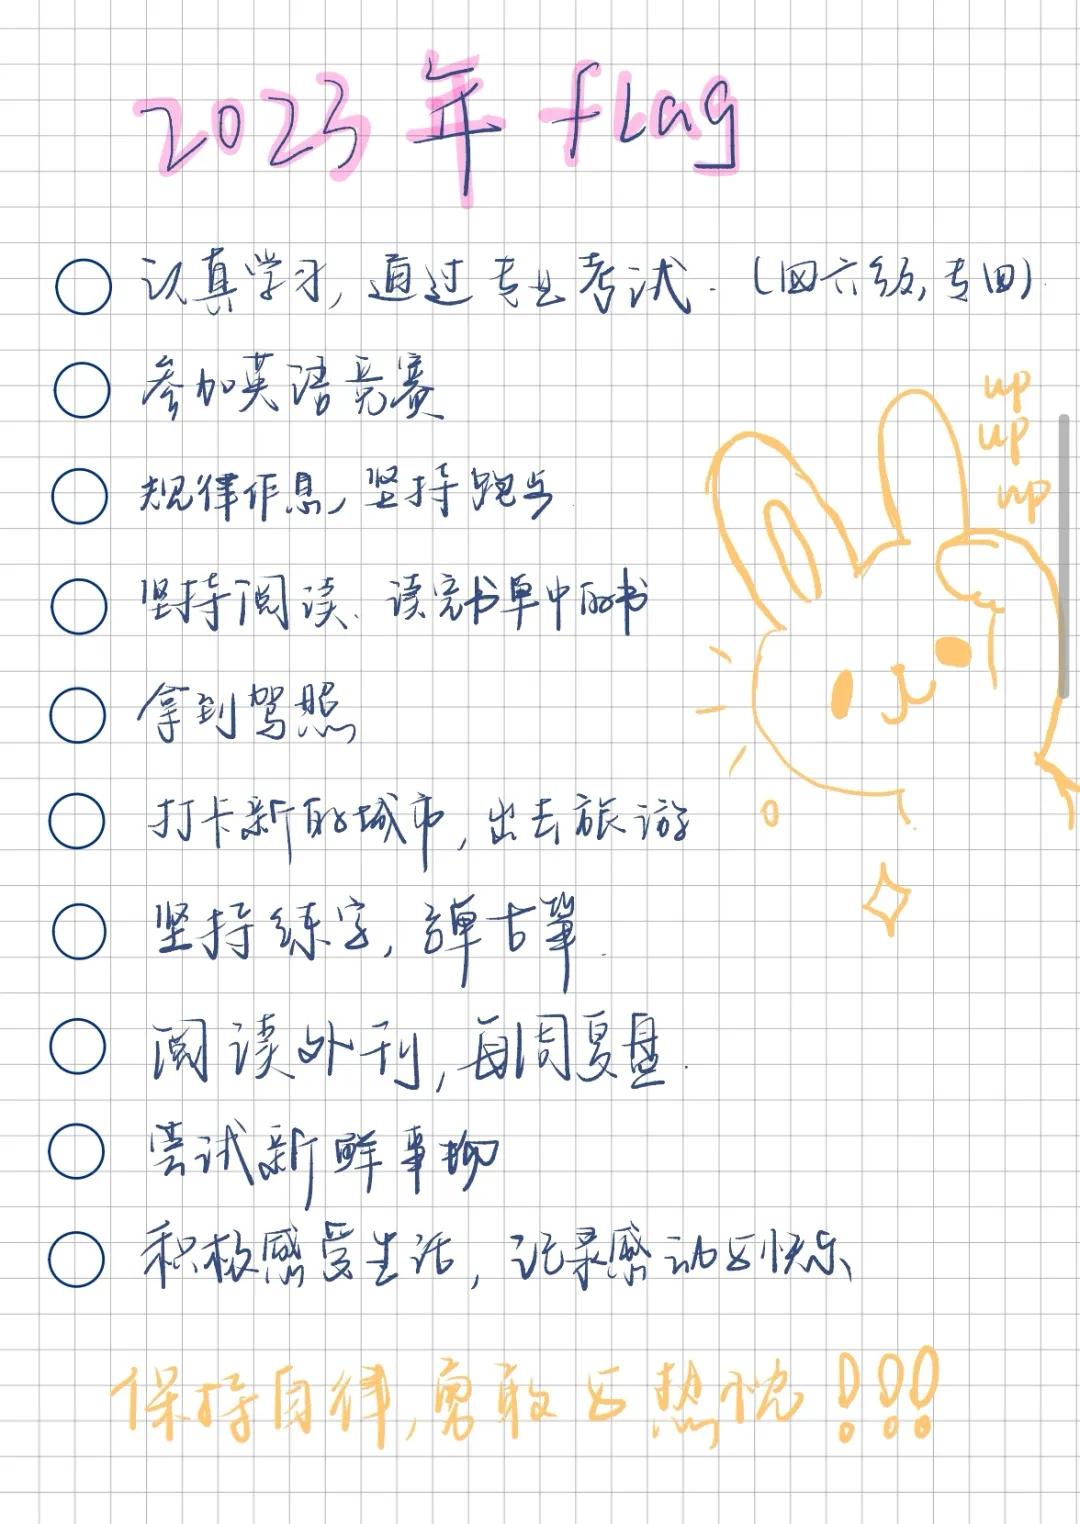 2023年 fLag
认真学习,通过专业考试.(四六级,专四)
参加英语竞赛
up
up
up
规律作息,坚持跑步
坚持阅读、读完书单中的书
拿到驾照
打卡新的城市,出去旅游
坚持练字,弹古筝.
阅读外刊,每周复盘.
尝试新鲜事物
积极感受生活,记录感动与快乐
保持自律,勇敢与热忱!!!